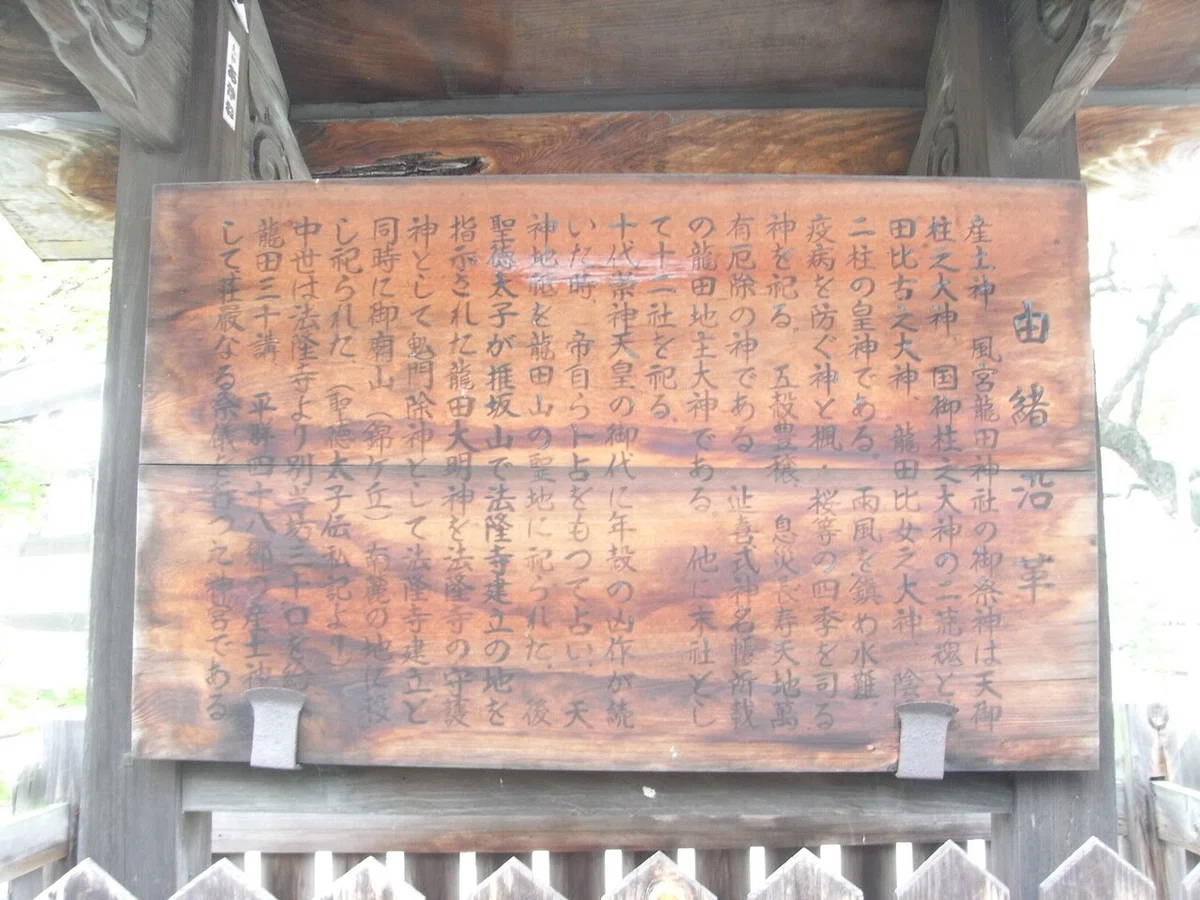 由緒沿革
産土神 風宮龍田神社の御祭神は天御
柱之大神、国御柱之大神の二龍魂と
田比古之大神、龍田比女之大神、陰
二柱の皇神である。雨風を鎮め水難
疫病を防ぐ神と楓・桜等の四季を司る
神を祀る。五穀豊穣、息災長寿天地萬
有厄除の神である 延喜式神名帳所載
の龍田地主大神である 他に末社とし
て十二社を祀る。
十代崇神天皇の御代に年穀の凶作が続
いた時、帝自ら卜占をもつて占い、天
神地祇を龍田山の聖地に祀られた。後
聖徳太子が椎坂山で法隆寺建立の地を
指示された龍田大明神を法隆寺の守護
神として鬼門除神として法隆寺建立と
同時に御廟山(錦ケ丘)南麓の地に移
し祀られた(聖徳太子伝私記より)
中世は法隆寺より別当坊三十口を
龍田三十講 平群四十八郷の産土神
して荘厳なる祭儀を行つた神宮である